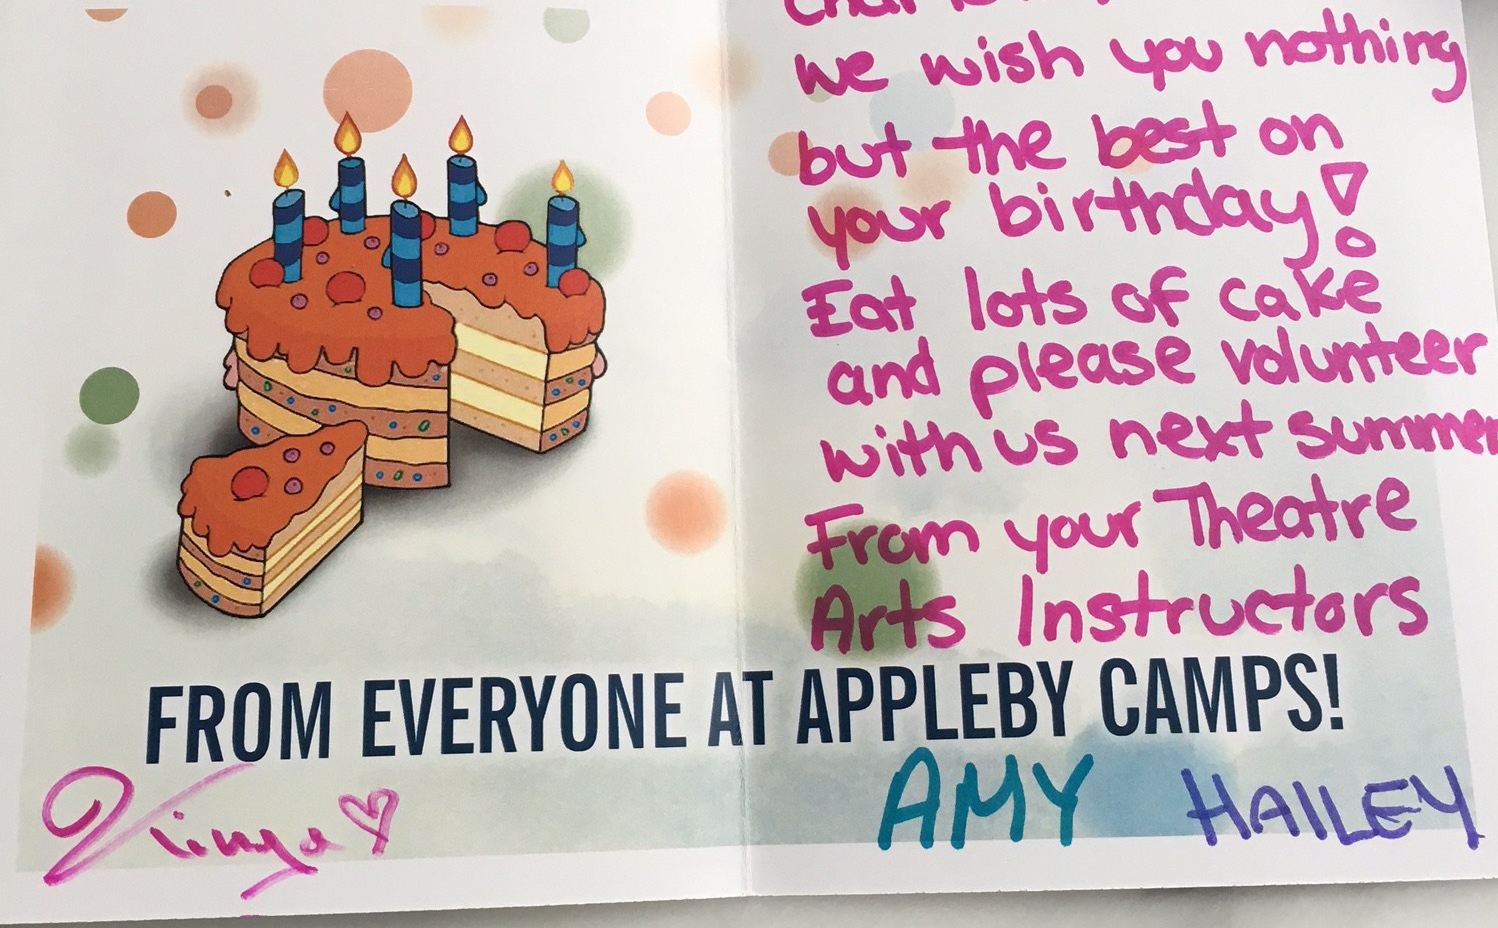 we wish you nothing
but the best on
your birthday!
Eat lots of cake
and please volunteer
with us next summer
From your Theatre
Arts Instructors
FROM EVERYONE AT APPLEBY CAMPS!
AMY HAILEY